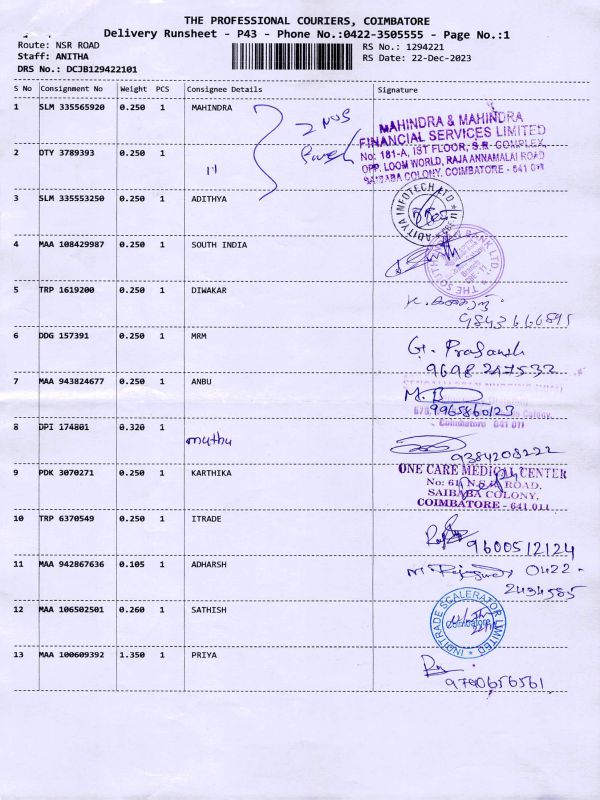 THE PROFESSIONAL COURIERS, COIMBATORE
Delivery Runsheet - P43 - Phone No.:0422-3505555 - Page No.:1
Route: NSR ROAD
RS No.: 1294221
Staff: ANITHA
RS Date: 22-Dec-2023
DRS No.: DCJB129422101
S No Consignment No Weight PCS Consignee Details Signature
1 SLM 335565920 0.250 1 MAHINDRA
2 Nos
MAHINDRA & MAHINDRA
FINANCIAL SERVICES LIMITED
No: 181-A, 1ST FLOOR, S.R. COMPLEX,
OPP. LOOM WORLD, RAJA ANNAMALAI ROAD
SAIBABA COLONY, COIMBATORE - 641 011
2 DTY 3789393 0.250 1 11
3 SLM 335553250 0.250 1 ADITHYA
ADITYA INFOTECH LTD
4 MAA 108429987 0.250 1 SOUTH INDIA
BANK LTD.
5 TRP 1619200 0.250 1 DIWAKAR
9843666895
6 DDG 157391 0.250 1 MRM
G. Prasansh
9698247533
7 MAA 943824677 0.250 1 ANBU
M. B
9965860123
Coimbatore 641 011
8 DPI 174801 0.320 1 muthu
9384208222
9 PDK 3070271 0.250 1 KARTHIKA
ONE CARE MEDICAL CENTER
No: 61, N.S.R. ROAD,
SAIBABA COLONY,
COIMBATORE - 641 011
10 TRP 6370549 0.250 1 ITRADE
9600512124
11 MAA 942867636 0.105 1 ADHARSH
0422-
2434585
12 MAA 106502501 0.260 1 SATHISH
INDITRADE SCALERATOR LIMITED
Coimbatore
13 MAA 100609392 1.350 1 PRIYA
9790656561